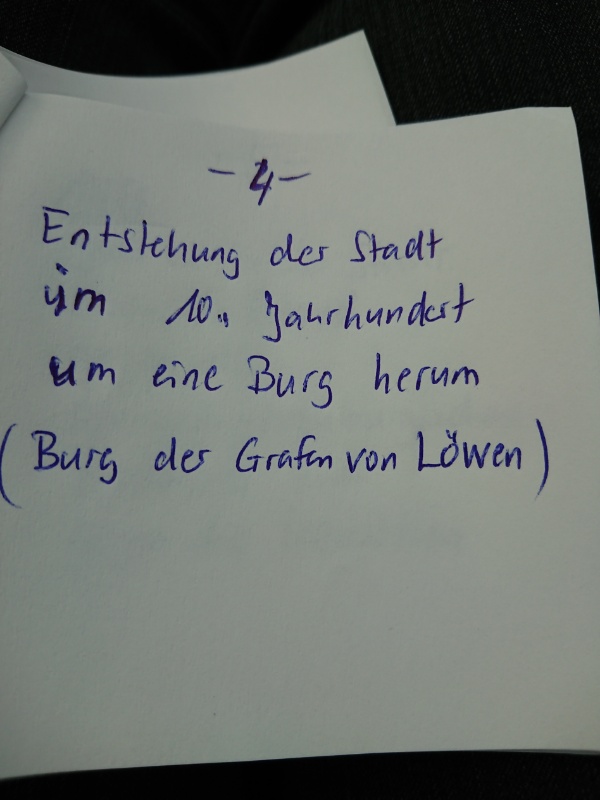 - 4 -
Entstehung der Stadt
im 10. Jahrhundert
um eine Burg herum
(Burg der Grafen von Löwen)